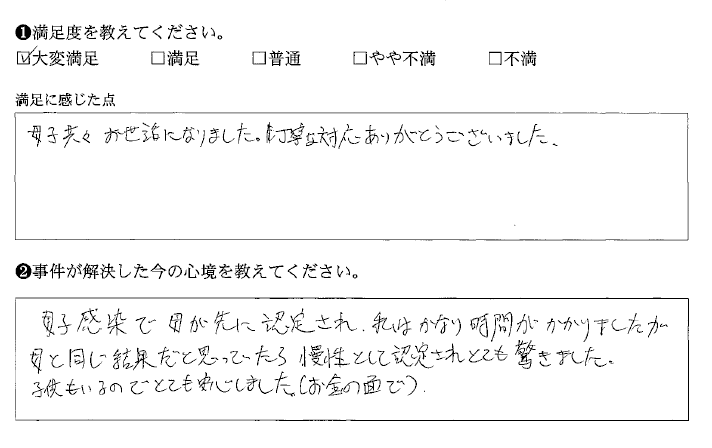 ❶満足度を教えてください。
☑大変満足 □満足 □普通 □やや不満 □不満
満足に感じた点
母子共々 お世話になりました。丁寧な対応ありがとうございました。
❷事件が解決した今の心境を教えてください。
母子感染で 母が先に認定され、私はかなり時間がかかりましたが
母と同じ結果だと思っていたら慢性として認定されとても驚きました。
子供もいるのでとても安心しました。(お金の面で)